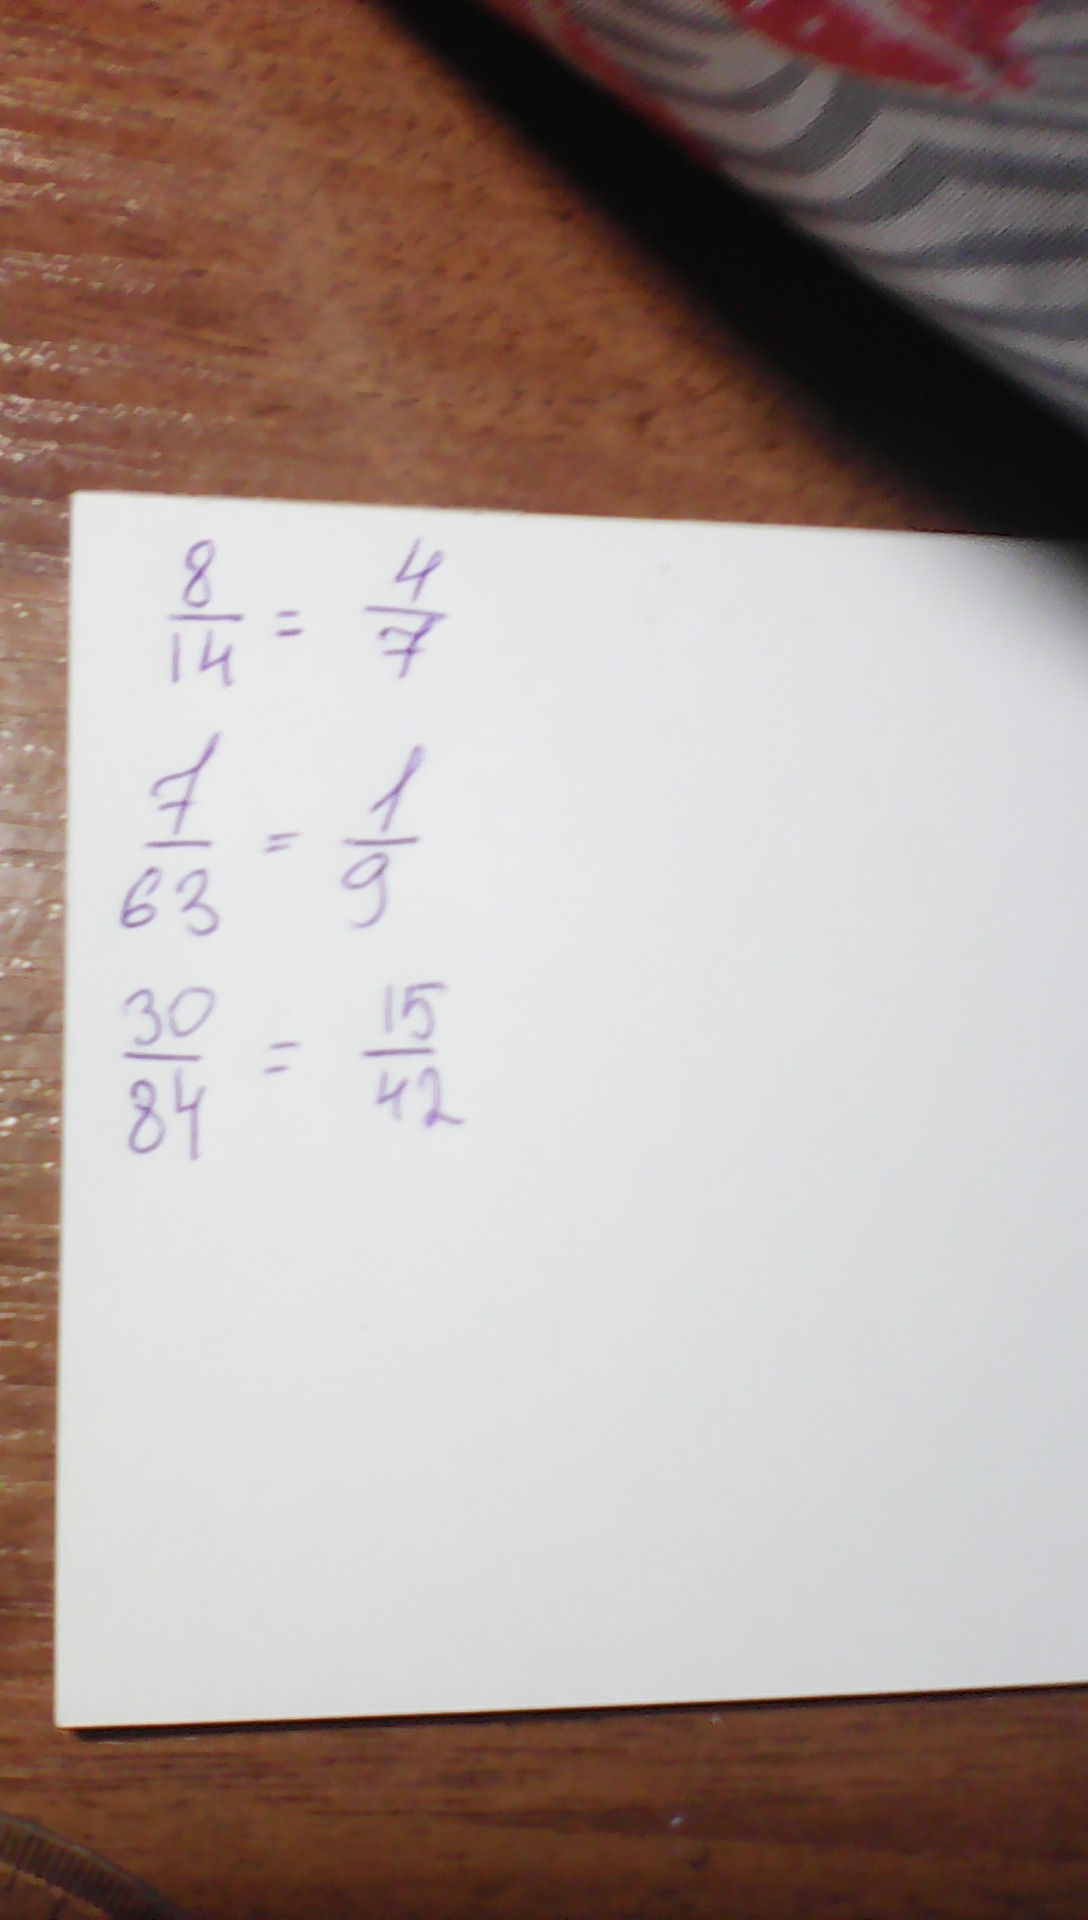 8/14 = 4/7
7/63 = 1/9
30/84 = 15/42